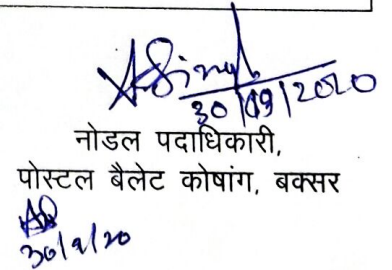 ASingh
30/09/2020
नोडल पदाधिकारी,
पोस्टल बैलेट कोषांग, बक्सर
30/9/20